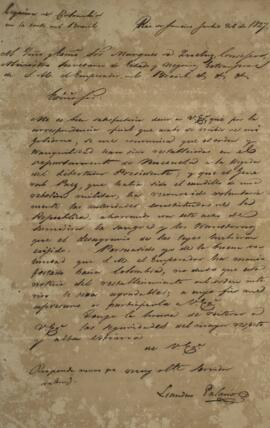 Legacion de Colombia
en la Corte del Brasil
Rio de Janeiro Julio 28 de 1827.
Al Illmo y Exmo Sor Marques de Queluz, Consejero,
Ministro Secretario de Estado y Negocios Extrangeros
de S. M. el Emperador del Brasil &. &. &.
Exmo Sor.
Me es satisfactorio decir a V. Exª que por la
correspondencia oficial que acabo de recibir de mi
gobierno, se me comunica que el orden y
tranquilidad han sido restablecidos en el
departamento de Venezuela a la llegada
del Libertador Presidente, y que el Gene
ral Paez, que habia sido el caudillo de una
rebelion militar, ha reconocido voluntaria
mente las autoridades constituidas de la
Republica, ahorrando con este acto de
sumision la sangre y los trastornos
que el desagravio de las leyes hubiera
exijido. Persuadido yo de la buena vo
luntad que S. M. el Emperador ha mani
festado hacia Colombia, no dudo que esta
noticia del restablecimiento del orden inte
rior le sera agradable; a cuyo fin me
apresuro a participarla a V. Exª
Tengo la honra de reiterar a
V. Exª las seguridades del mayor respeto
y alta
de V. Exª
muy atto servidor
Leandro Palacios